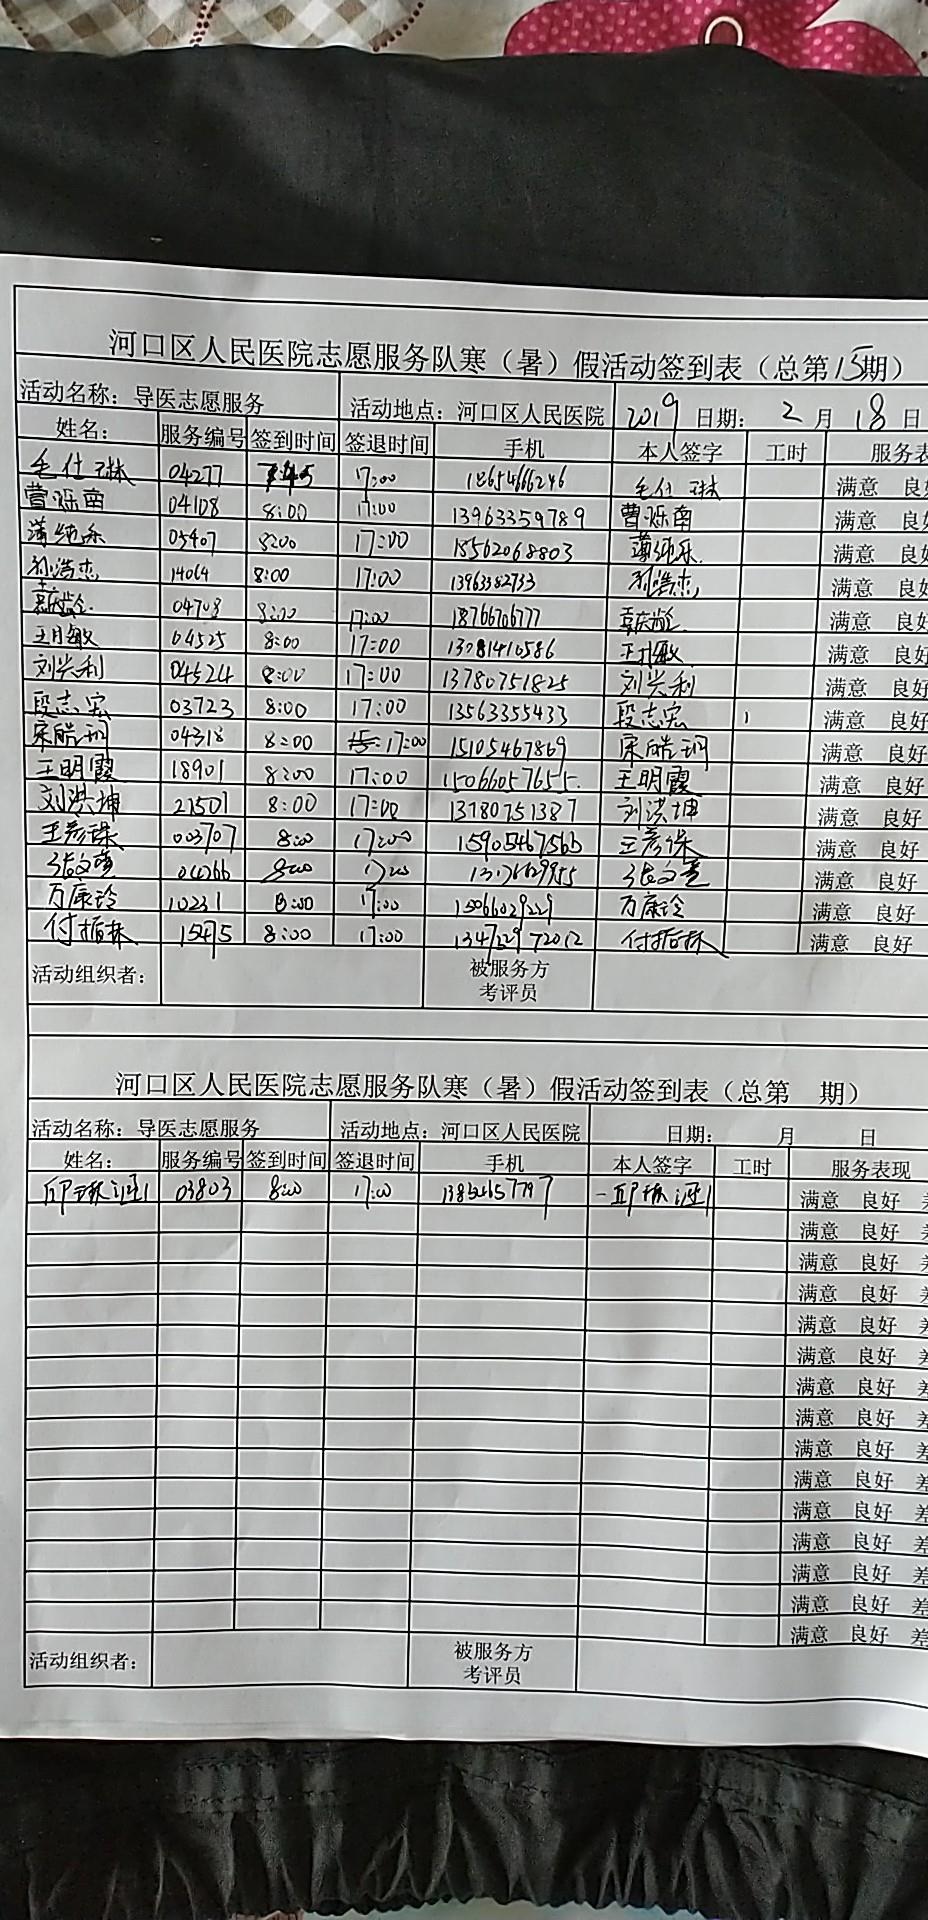 河口区人民医院志愿服务队寒（暑）假活动签到表（总第15期）
活动名称：导医志愿服务 活动地点：河口区人民医院 2019 日期： 2 月 18 日
姓名： 服务编号 签到时间 签退时间 手机 本人签字 工时 服务表
毛仕琳 04277 17:00 毛仕琳 满意 良好
曹烁南 04108 8:00 17:00 13963359789 曹烁南 满意 良好
薄纯乐 05407 8:00 17:00 15562068803 薄纯乐 满意 良好
孙浩杰 14064 8:00 17:00 13963382733 孙浩杰 满意 良好
04708 8:00 17:00 18766706777 满意 良好
04525 8:00 17:00 13781410586 满意 良好
刘兴利 04624 8:00 17:00 13780751825 刘兴利 满意 良好
段志宏 03723 8:00 17:00 13563355433 段志宏 满意 良好
宋皓玥 04318 8:00 17:00 15105467869 宋皓玥 满意 良好
王明霞 18901 8:00 17:00 15066057655 王明霞 满意 良好
刘洪坤 21501 8:00 17:00 13780751387 刘洪坤 满意 良好
王彦姝 003707 8:00 17:00 15905467566 王彦姝 满意 良好
04266 8:00 17:00 满意 良好
万康玲 10231 8:00 17:00 15066029229 万康玲 满意 良好
15495 8:00 17:00 满意 良好
活动组织者： 被服务方
考评员
河口区人民医院志愿服务队寒（暑）假活动签到表（总第 期）
活动名称：导医志愿服务 活动地点：河口区人民医院 日期： 月 日
姓名： 服务编号 签到时间 签退时间 手机 本人签字 工时 服务表现
03803 8:00 17:00 满意 良好 差
满意 良好 差
满意 良好 差
满意 良好 差
满意 良好 差
满意 良好 差
满意 良好 差
满意 良好 差
满意 良好 差
满意 良好 差
满意 良好 差
满意 良好 差
满意 良好 差
满意 良好 差
满意 良好 差
活动组织者： 被服务方
考评员